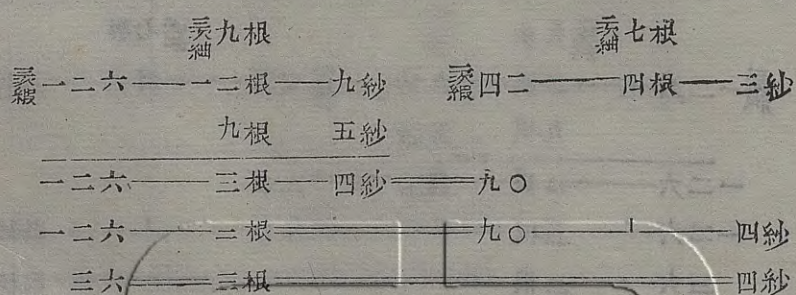 三癸紬九根 三癸紬七根
三癸緞一二六——一二根——九紗 三癸緞四二——四根——三紗
九根 五紗
一二六——三根——四紗══九〇
一二六——三根══九〇——四紗
三六══三根══四紗